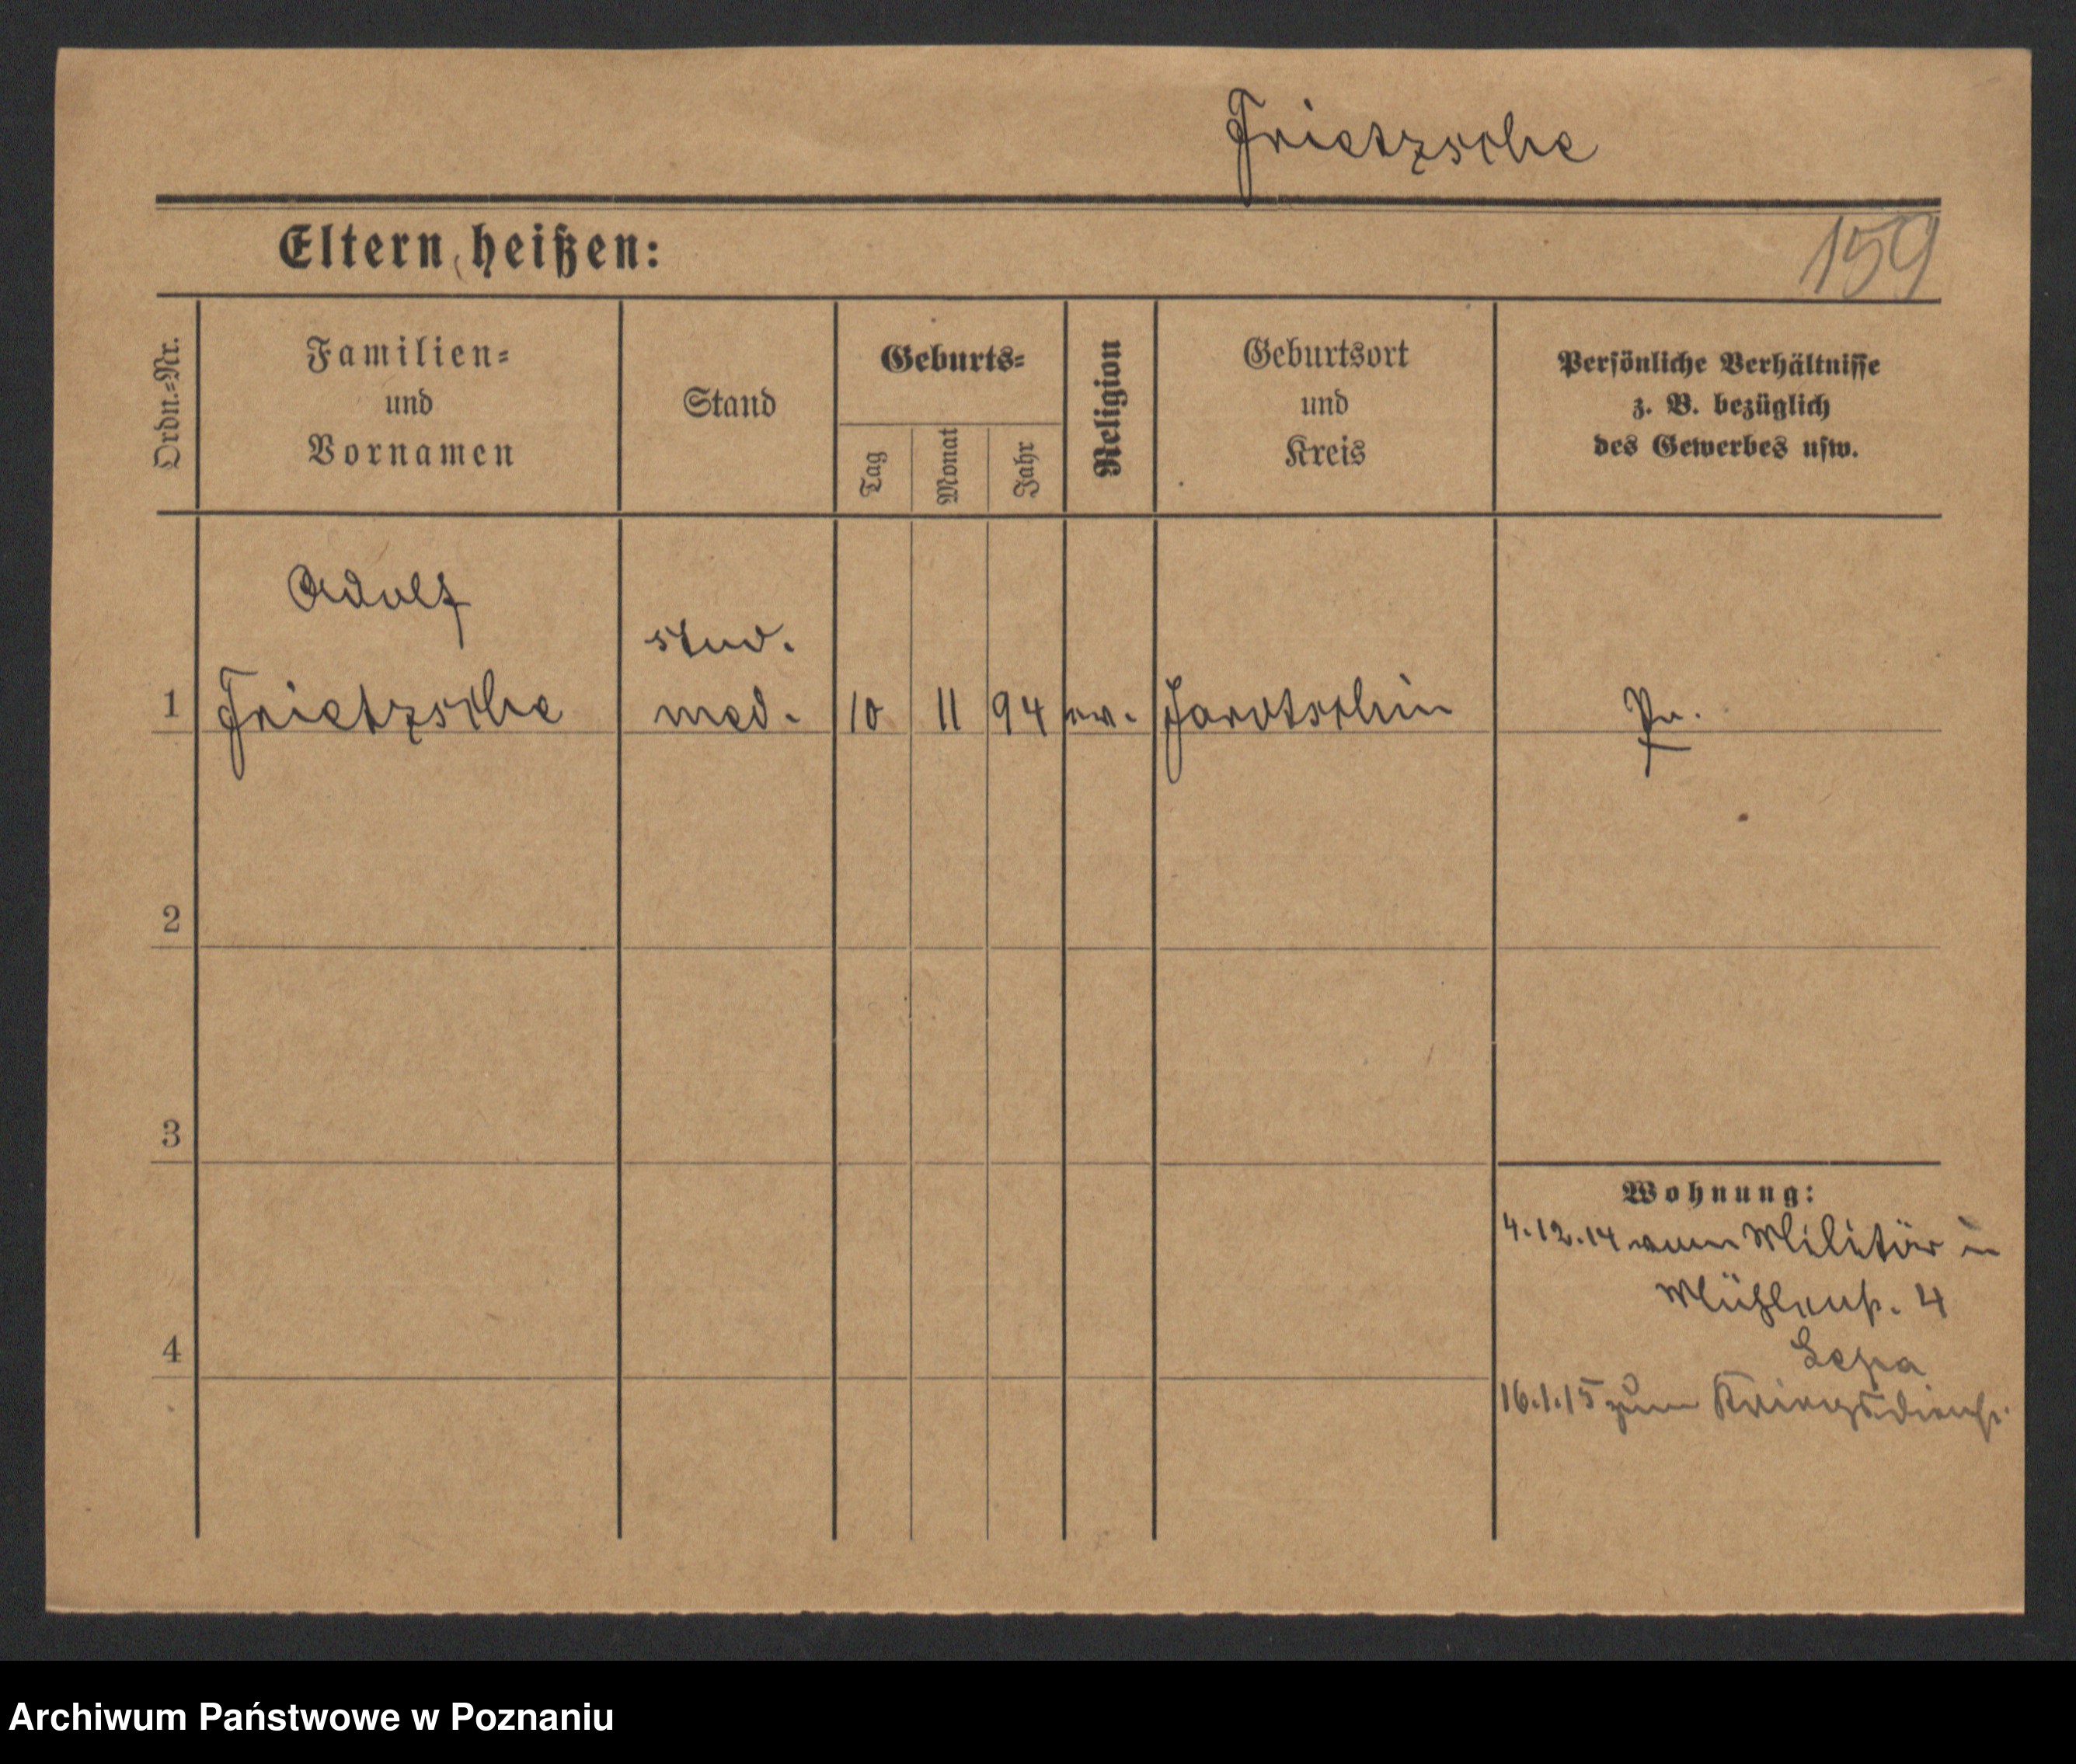 Frietzsche
159
Eltern heißen:
Ordn.-Nr.
Familien-
und
Vornamen
Stand
Geburts-
Tag
Monat
Jahr
Religion
Geburtsort
und
Kreis
Persönliche Verhältnisse
z. B. bezüglich
des Gewerbes usw.
1
Adolf
Frietzsche
stud.
med.
10
11
94
ev.
Jarotschin
Pr.
2
3
4
Wohnung:
4.12.14 vom Militär in
Mühlenstr. 4
16.1.15 zum Kriegsdienst
Archiwum Państwowe w Poznaniu